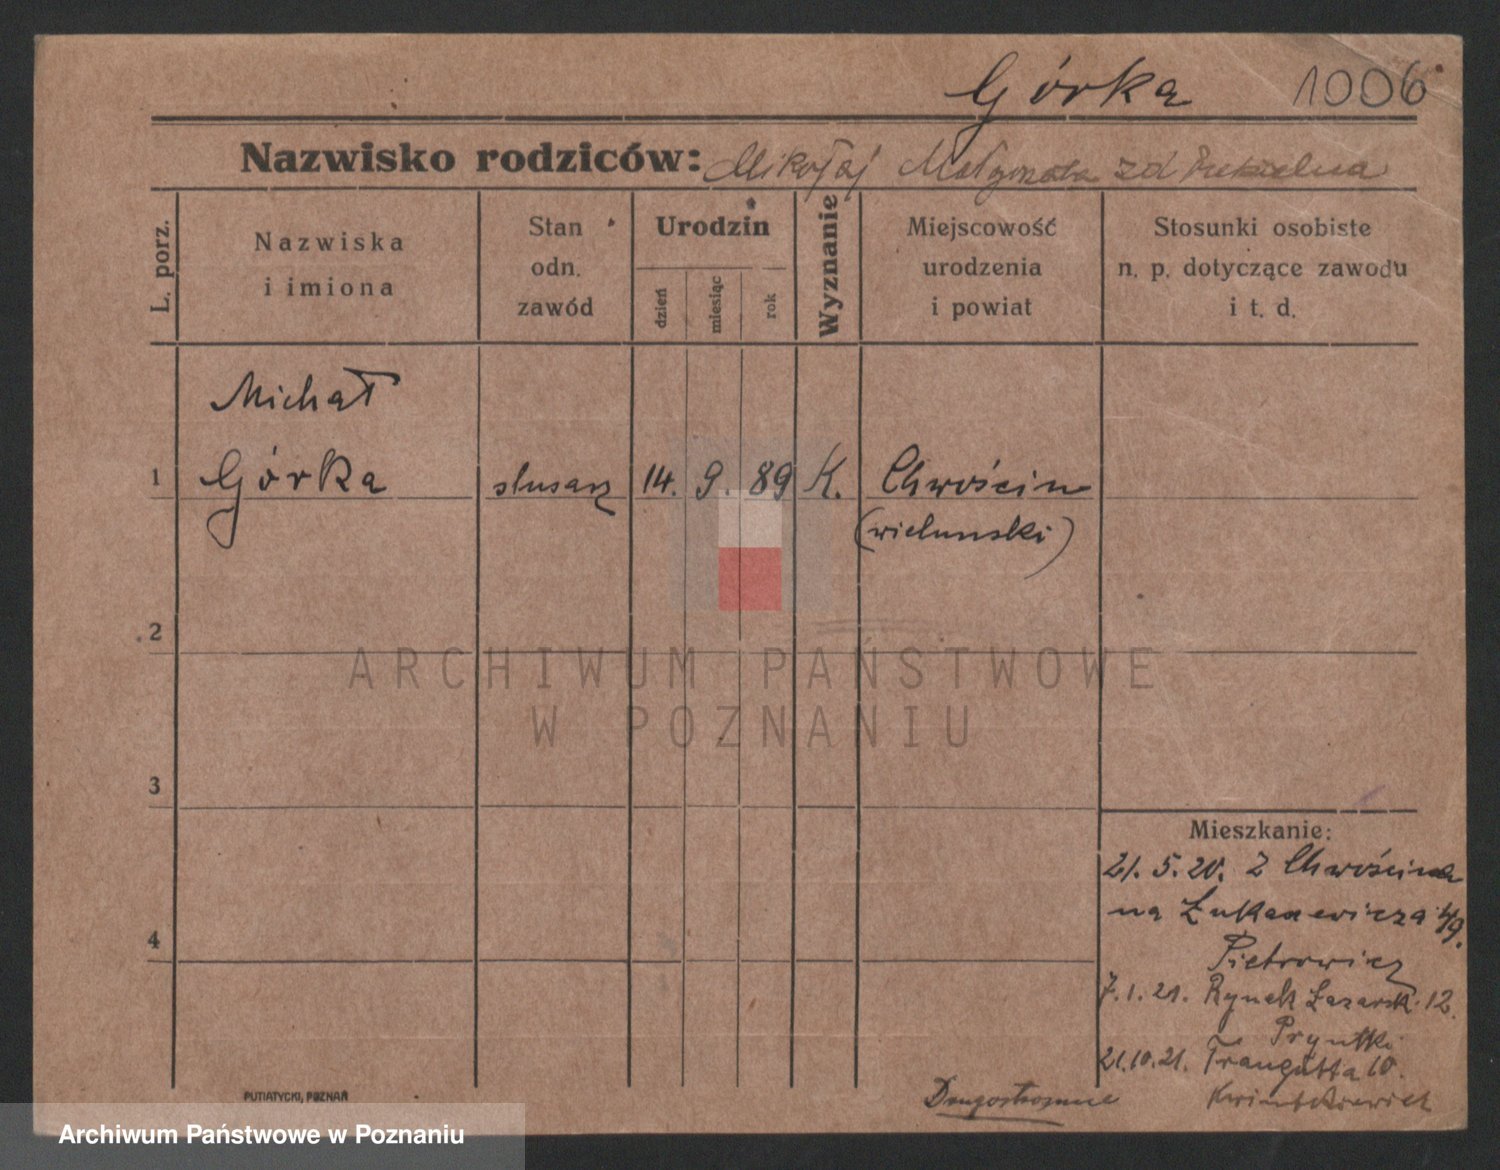 Górka 1006
Nazwisko rodziców: Mikołaj Małgorzata zd
L. porz.
Nazwiska
i imiona
Stan
odn.
zawód
Urodzin
dzień
miesiąc
rok
Wyznanie
Miejscowość
urodzenia
i powiat
Stosunki osobiste
n. p. dotyczące zawodu
i t. d.
Michał
1 Górka slusarz 14. 9. 89 K. Chwościn
(wielunski)
2
ARCHIWUM PAŃSTWOWE
W POZNANIU
3
Mieszkanie:
21. 5. 20. z Chwościna
na Łukaszewicza 49.
4
Pietrowicz
7. 1. 21. Rynek Łazarsk. 12.
21.10.21. Traugutta 10.
PUTIATYCKI, POZNAŃ
Archiwum Państwowe w Poznaniu